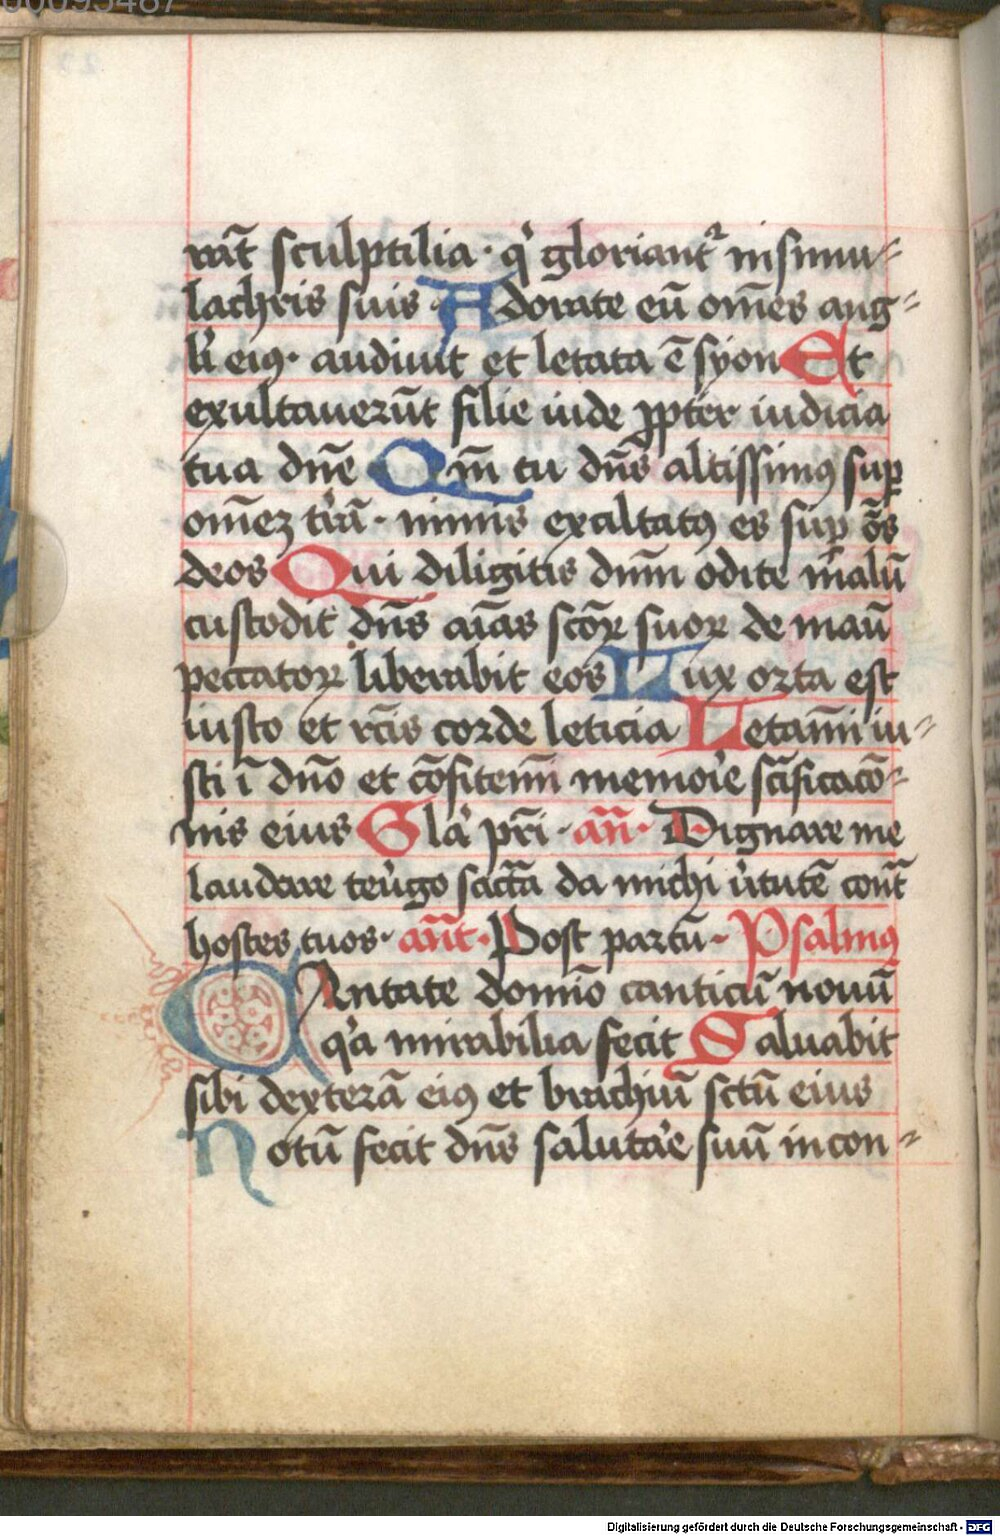 00095487
rāt sculptilia · q̇ gloriantr̃ in simu-
lachris suis · Adorate eū om̄es ang-
li eiꝰ · audiuit et letata ē syon Et
exultauerūt filie iude ꝓpter iudicia
tua dn̄e Qm̄ tu dn̄s altissimꝰ suꝑ
om̄eʒ t̄rā · nimis exaltatꝰ es suꝑ ōs
deos Qui diligitis dnm̄ odite malū
custodit dn̄s aīas scōꝝ suoꝝ de manū
peccatoꝝ liberabit eos Lux orta est
iusto et rc̄is corde leticia Letam̄i iu-
sti ī dn̄o et cōfitemī memoīe sc̄ificacō-
nis eius Glā pr̄i · an̄ · Dignare me
laudare te v̇go sacr̄ta da michi v̇tutē cont̄
hostes tuos · an̄t · Post partū · Psalmꝰ
CAntate domīo canticū nouū
qꝛa mirabilia fecit Saluabit
sibi dexterā eiꝰ et brachiū sctū eius
Notū fecit dn̄s salutāe suū in con-
Digitalisierung gefördert durch die Deutsche Forschungsgemeinschaft - DFG